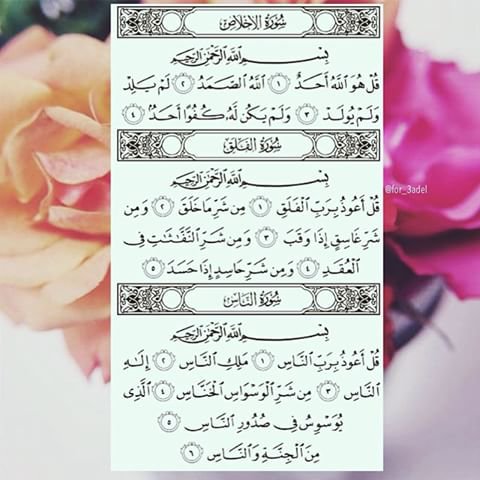 سُورَةُ الإِخْلَاصِ
بِسْمِ ٱللَّهِ ٱلرَّحْمَٰنِ ٱلرَّحِيمِ
قُلْ هُوَ ٱللَّهُ أَحَدٌ ١ ٱللَّهُ ٱلصَّمَدُ ٢ لَمْ يَلِدْ
وَلَمْ يُولَدْ ٣ وَلَمْ يَكُن لَّهُۥ كُفُوًا أَحَدٌۢ ٤
سُورَةُ الفَلَقِ
بِسْمِ ٱللَّهِ ٱلرَّحْمَٰنِ ٱلرَّحِيمِ
قُلْ أَعُوذُ بِرَبِّ ٱلْفَلَقِ ١ مِن شَرِّ مَا خَلَقَ ٢ وَمِن
شَرِّ غَاسِقٍ إِذَا وَقَبَ ٣ وَمِن شَرِّ ٱلنَّفَّٰثَٰتِ فِى
ٱلْعُقَدِ ٤ وَمِن شَرِّ حَاسِدٍ إِذَا حَسَدَ ٥
سُورَةُ النَّاسِ
بِسْمِ ٱللَّهِ ٱلرَّحْمَٰنِ ٱلرَّحِيمِ
قُلْ أَعُوذُ بِرَبِّ ٱلنَّاسِ ١ مَلِكِ ٱلنَّاسِ ٢ إِلَٰهِ
ٱلنَّاسِ ٣ مِن شَرِّ ٱلْوَسْوَاسِ ٱلْخَنَّاسِ ٤ ٱلَّذِى
يُوَسْوِسُ فِى صُدُورِ ٱلنَّاسِ ٥
مِنَ ٱلْجِنَّةِ وَٱلنَّاسِ ٦
@for_3adel